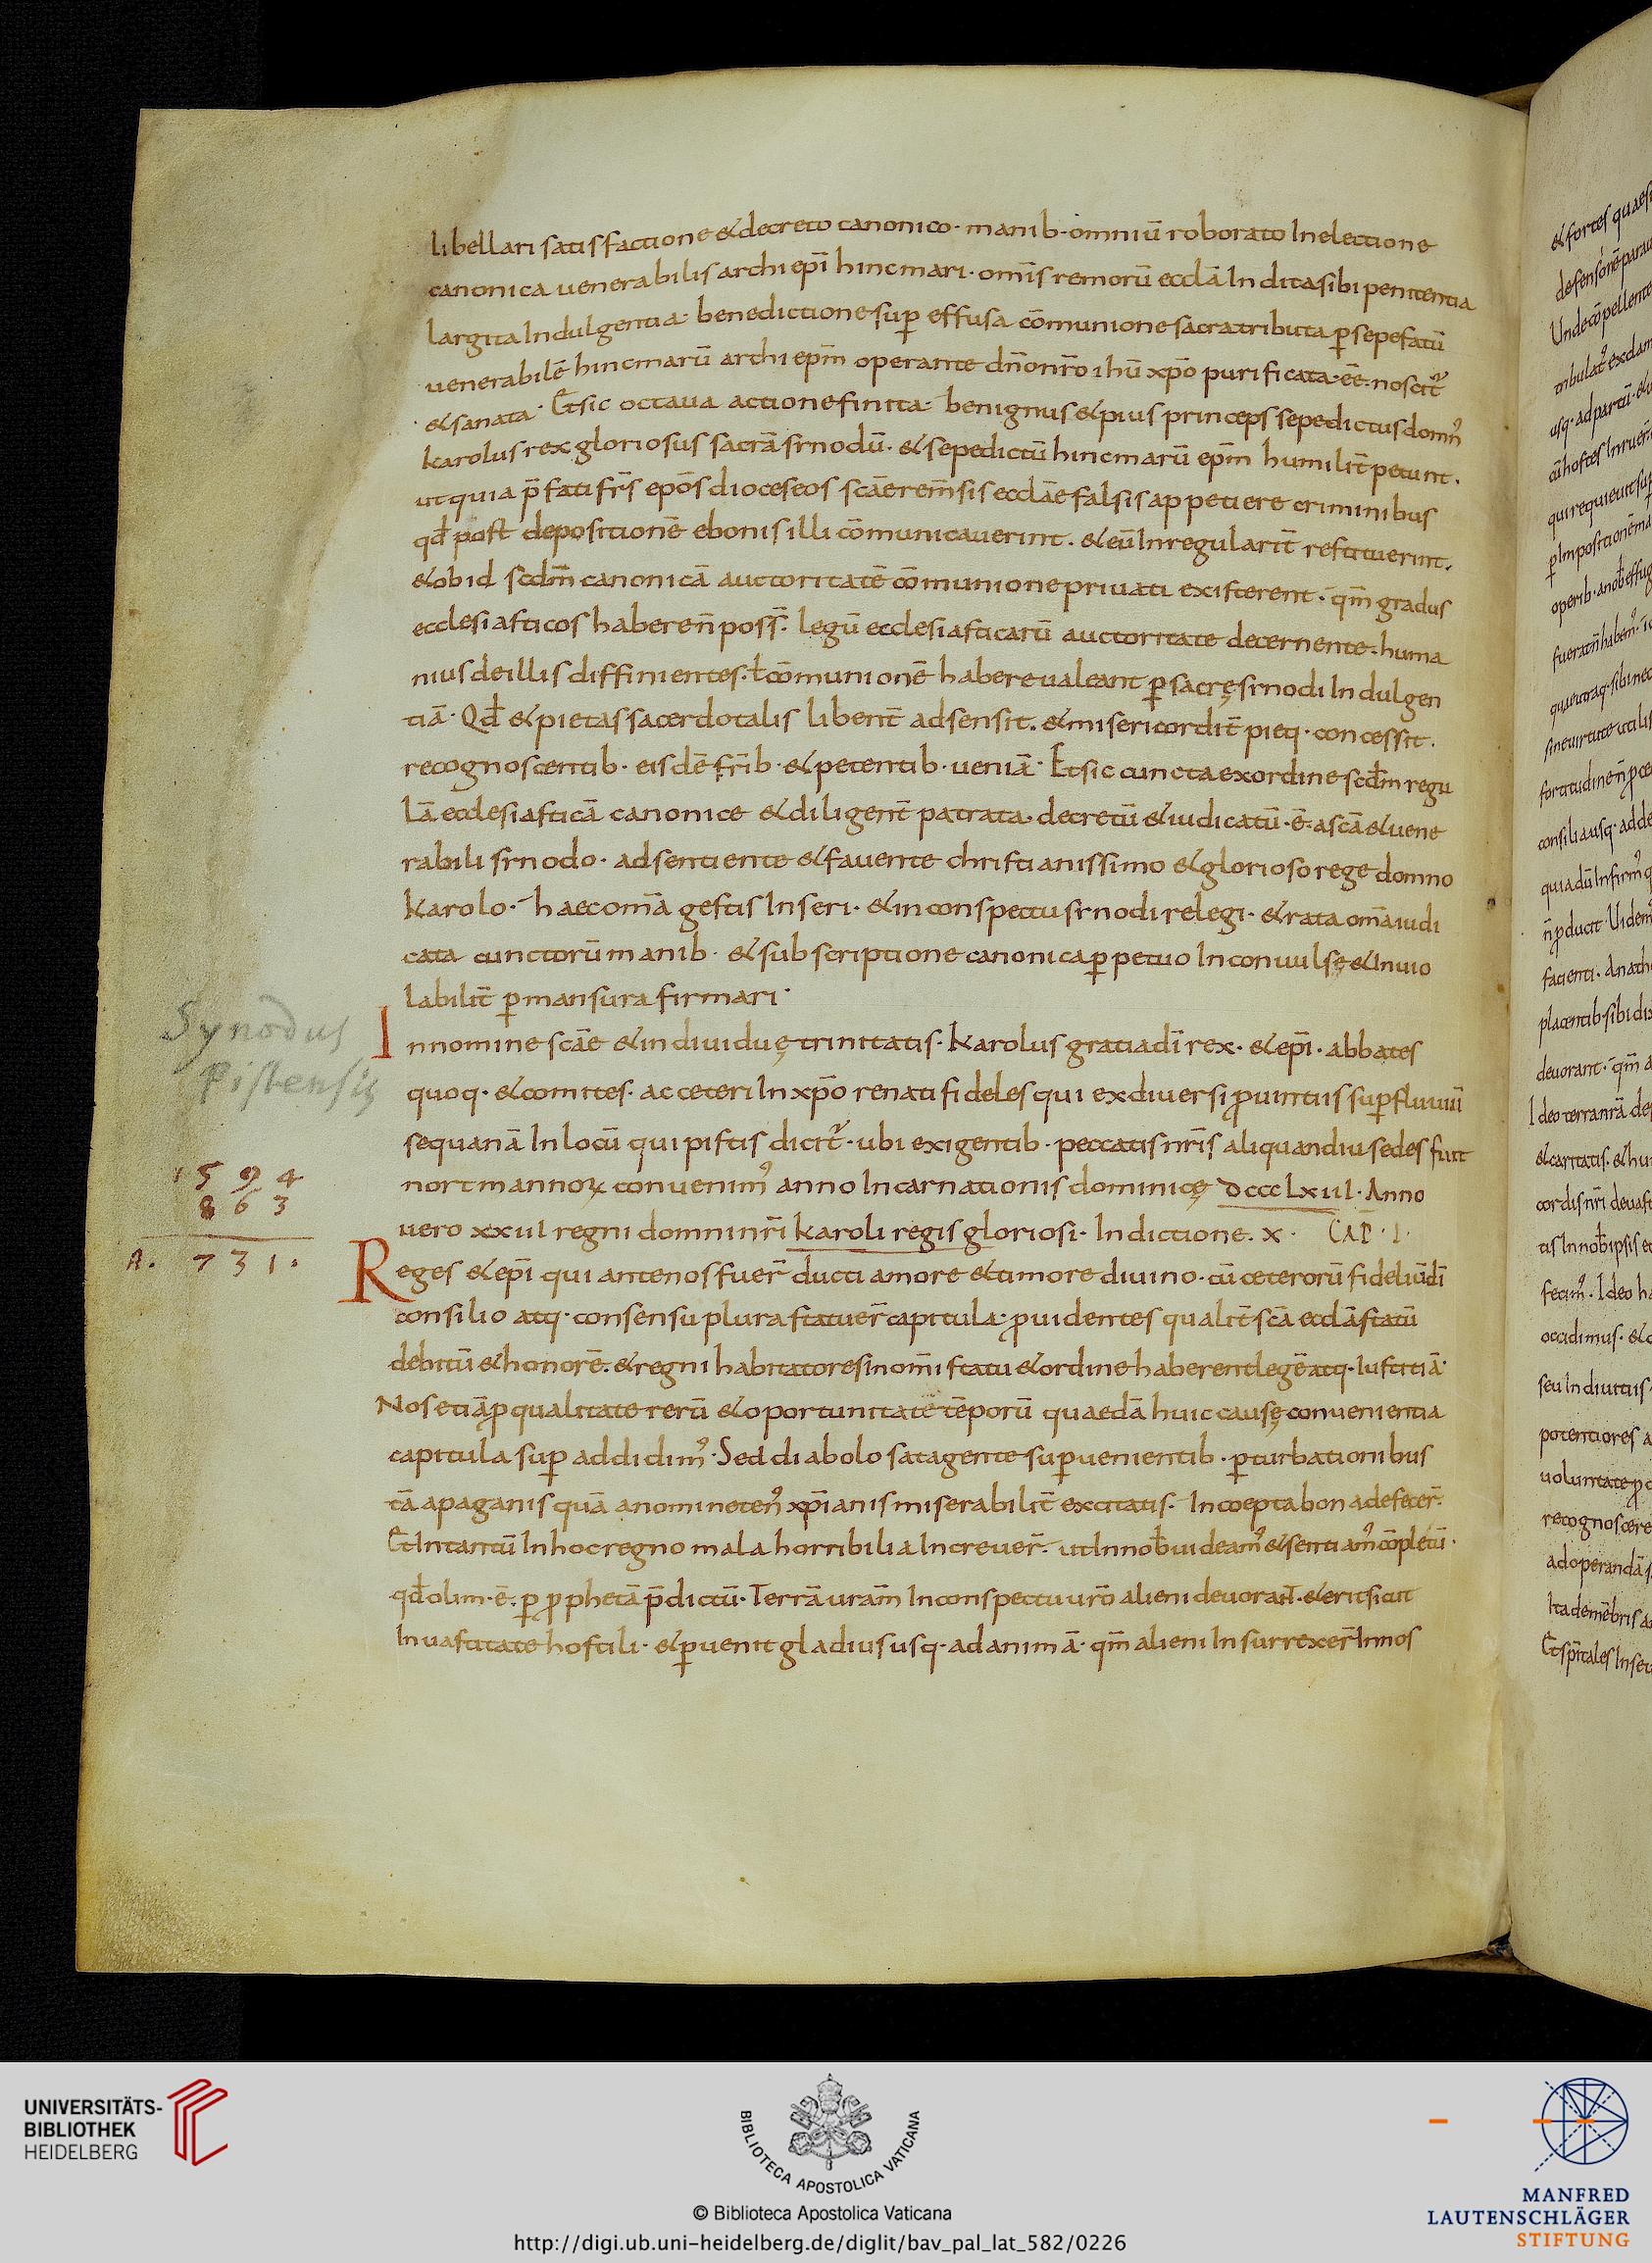 libellari satisfactione & decreto canonico · manib · omniū roborato In electione
canonica uenerabilis archiepī hincmari · omīs remorū ecclā In dicta sibi penitentia
largita Indulgentia · benedictione sup̄ effusa cōmunione sacra tributa p̄ sepefatū
uenerabilē hincmarū archiepm̄ operante dn̄o nr̄o ihū xp̄o purificata · eē · noscit᷑
& sanata · Et sic octaua actione finita · benignus & pius princeps sepedictus domn᷒
karolus rex gloriosus sacrā sinodū · & sepedictū hincmarū epm̄ humilit̄ petunt ·
ut quia p̄fati frs̄ epōs dioceseos scāe rem̄sis ecclāe falsis appetiere criminibus
qđ post depositionē ebonis illi cōmunicauerint · & eū Inregularit̄ restituerint ·
& ob id scdm̄ canonicā auctoritatē cōmunione priuati existerent · qm̄ gradus
ecclesiasticos habere n̄ poss̄ · legū ecclesiasticarū auctoritate decernente · huma
nius de illis diffinientes · ł cōmunionē habere ualeant p̄ sacrę sinodi Indulgen
tiā · Qđ & pietas sacerdotalis libent̄ adsensit · & misericordit̄ pieq · concessit ·
recognoscentib · eisdē frīb · & petentib · ueniā · Et sic cuncta ex ordine scđm regu
lā ecclesiasticā canonice & diligent̄ patrata · decretū & iudicatū · ē · a scā & uene
rabili sinodo · adsentiente & fauente christianissimo & glorioso rege domno
karolo · haec omā gestis Inseri · & in conspectu sinodi relegi · & rata omā iudi
cata cunctorū manib · & subscriptione canonica p̄petuo Inconuulsę & Inuio
labilit̄ p̄mansura firmari ·
Synodus
Pistensis
In nomine scāe & indiuiduę trinitatis · karolus gratia dī rex · & epī · abbates
quoq · & comites · ac ceteri In xp̄o renati fideles qui ex diuersi p̄uintiis sup̄ fluuiū
sequanā In locū qui pistis dicit᷑ · ubi exigentib · peccatis nrīs aliquandiu sedes fuit
nortmannoꝝ conuenim᷒ anno Incarnationis dominicę dccclxiii · Anno
uero xxiii regni domni nrī karoli regis gloriosi · Indictione · x · CAP · I ·
1594
863
A. 731.
Reges & epī qui ante nos fuer̄ ducti amore & timore diuino · cū ceterorū fideliū dī
consilio atq · consensu plura statuer̄ capitula · p̄uidentes qualit̄ scā ecclā statū
debitū & honorē · & regni habitatores in omī statu & ordine haberent legē atq · Iustitiā ·
Nos etiā p̄ qualitate rerū & oportunitate tēporū quaedā huic causę conuenientia
capitula sup̄ addidim᷒ · Sed diabolo satagente sup̄uenientib · p̄turbationibus
tā a paganis quā a nomineten᷒ xp̄ianis miserabilit̄ excitatis · Incoepta bona defecer̄ ·
Et Intantū In hoc regno mala horribilia Increuer̄ · ut In nob̄ uideam᷒ & sentiam᷒ cōpletū ·
qđ olim · ē · p̄ p̄phetā p̄dictū · Terrā uram̄ In conspectu urō alieni deuorant · & erit sicut
In uastitate hostili · & p̄uenit gladius usq · ad animā · qm̄ alieni Insurrexer̄ In nos
UNIVERSITÄTS-
BIBLIOTHEK
HEIDELBERG
BIBLIOTECA APOSTOLICA VATICANA
© Biblioteca Apostolica Vaticana
http://digi.ub.uni-heidelberg.de/diglit/bav_pal_lat_582/0226
MANFRED
LAUTENSCHLÄGER
STIFTUNG